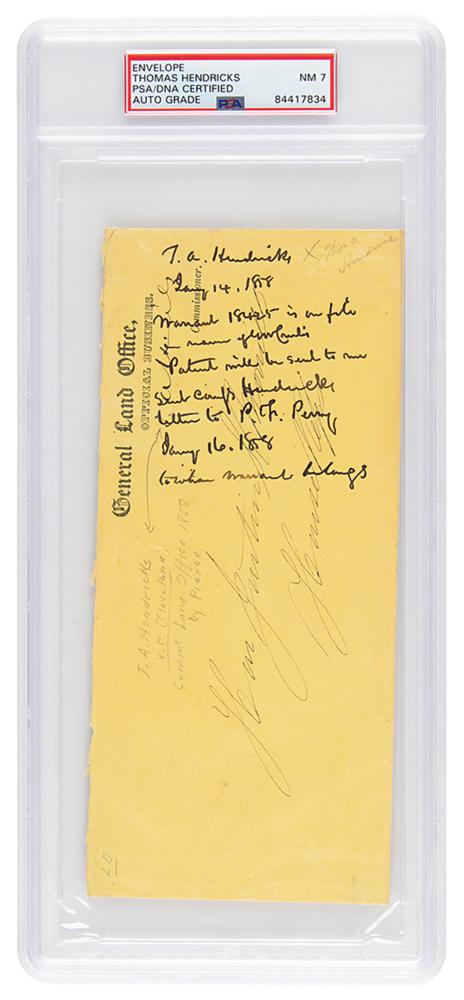 ENVELOPE
THOMAS HENDRICKS NM 7
PSA/DNA CERTIFIED
AUTO GRADE PSA 84417834
T. A. Hendricks
Jany 14. 1858
Warrant 18425 is on file
in name of
Patent will be sent to me
Sent Hendricks
letter to P. Perry
Jany 16. 1858
to whom warrant belongs
X Thos A
Hendricks
General Land Office,
OFFICIAL BUSINESS.
Commissioner.
T. A. Hendricks
V.P. (Cleveland)
Commr Land Office 1858
by Pierce
Hon